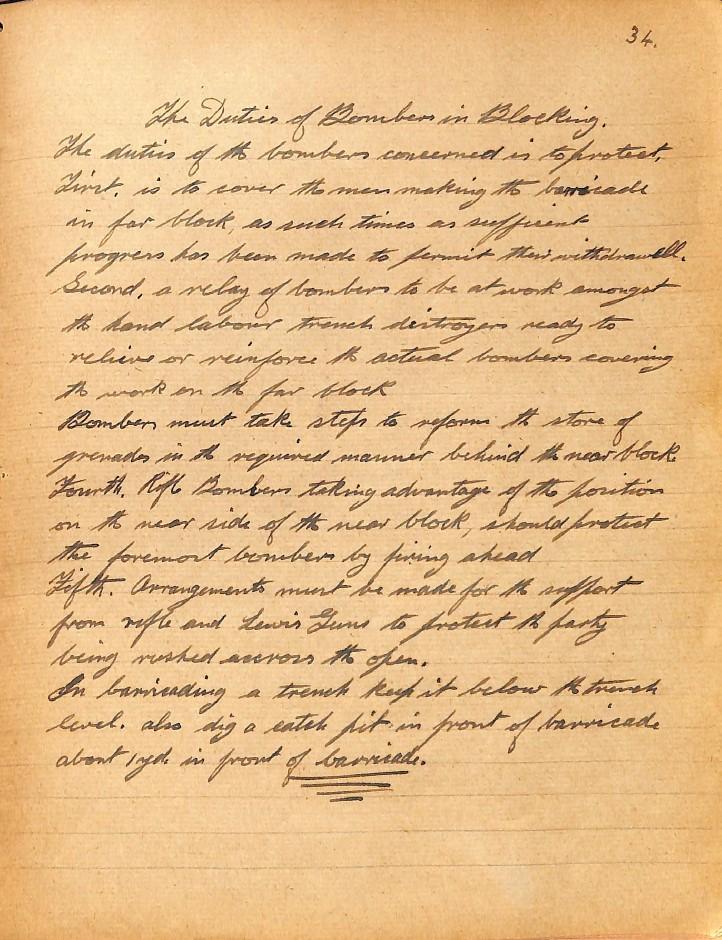 34.
The Duties of Bombers in Blocking.
The duties of th bombers concerned is to protect,
First, is to cover th men making th barricade
in far block, as such times as sufficient
progress has been made to permit their withdrawell.
Second, a relay of bombers to be at work amongst
th hand labour trench distroyers ready to
relieve or reinforce th actual bombers covering
th work on th far block
Bombers must take steps to reform th store of
grenades in th required manner behind th near block
Fourth, Rifl Bombers taking advantage of th position
on th near side of th near block, should protect
the foremost bombers by firing ahead
Fifth. Arrangements must be made for th support
from rifle and Lewis Guns to protect th party
being rushed accross th open.
In barricading a trench keep it below th trench
level. also dig a catch pit in front of barricade
about 1yd. in front of barricade.